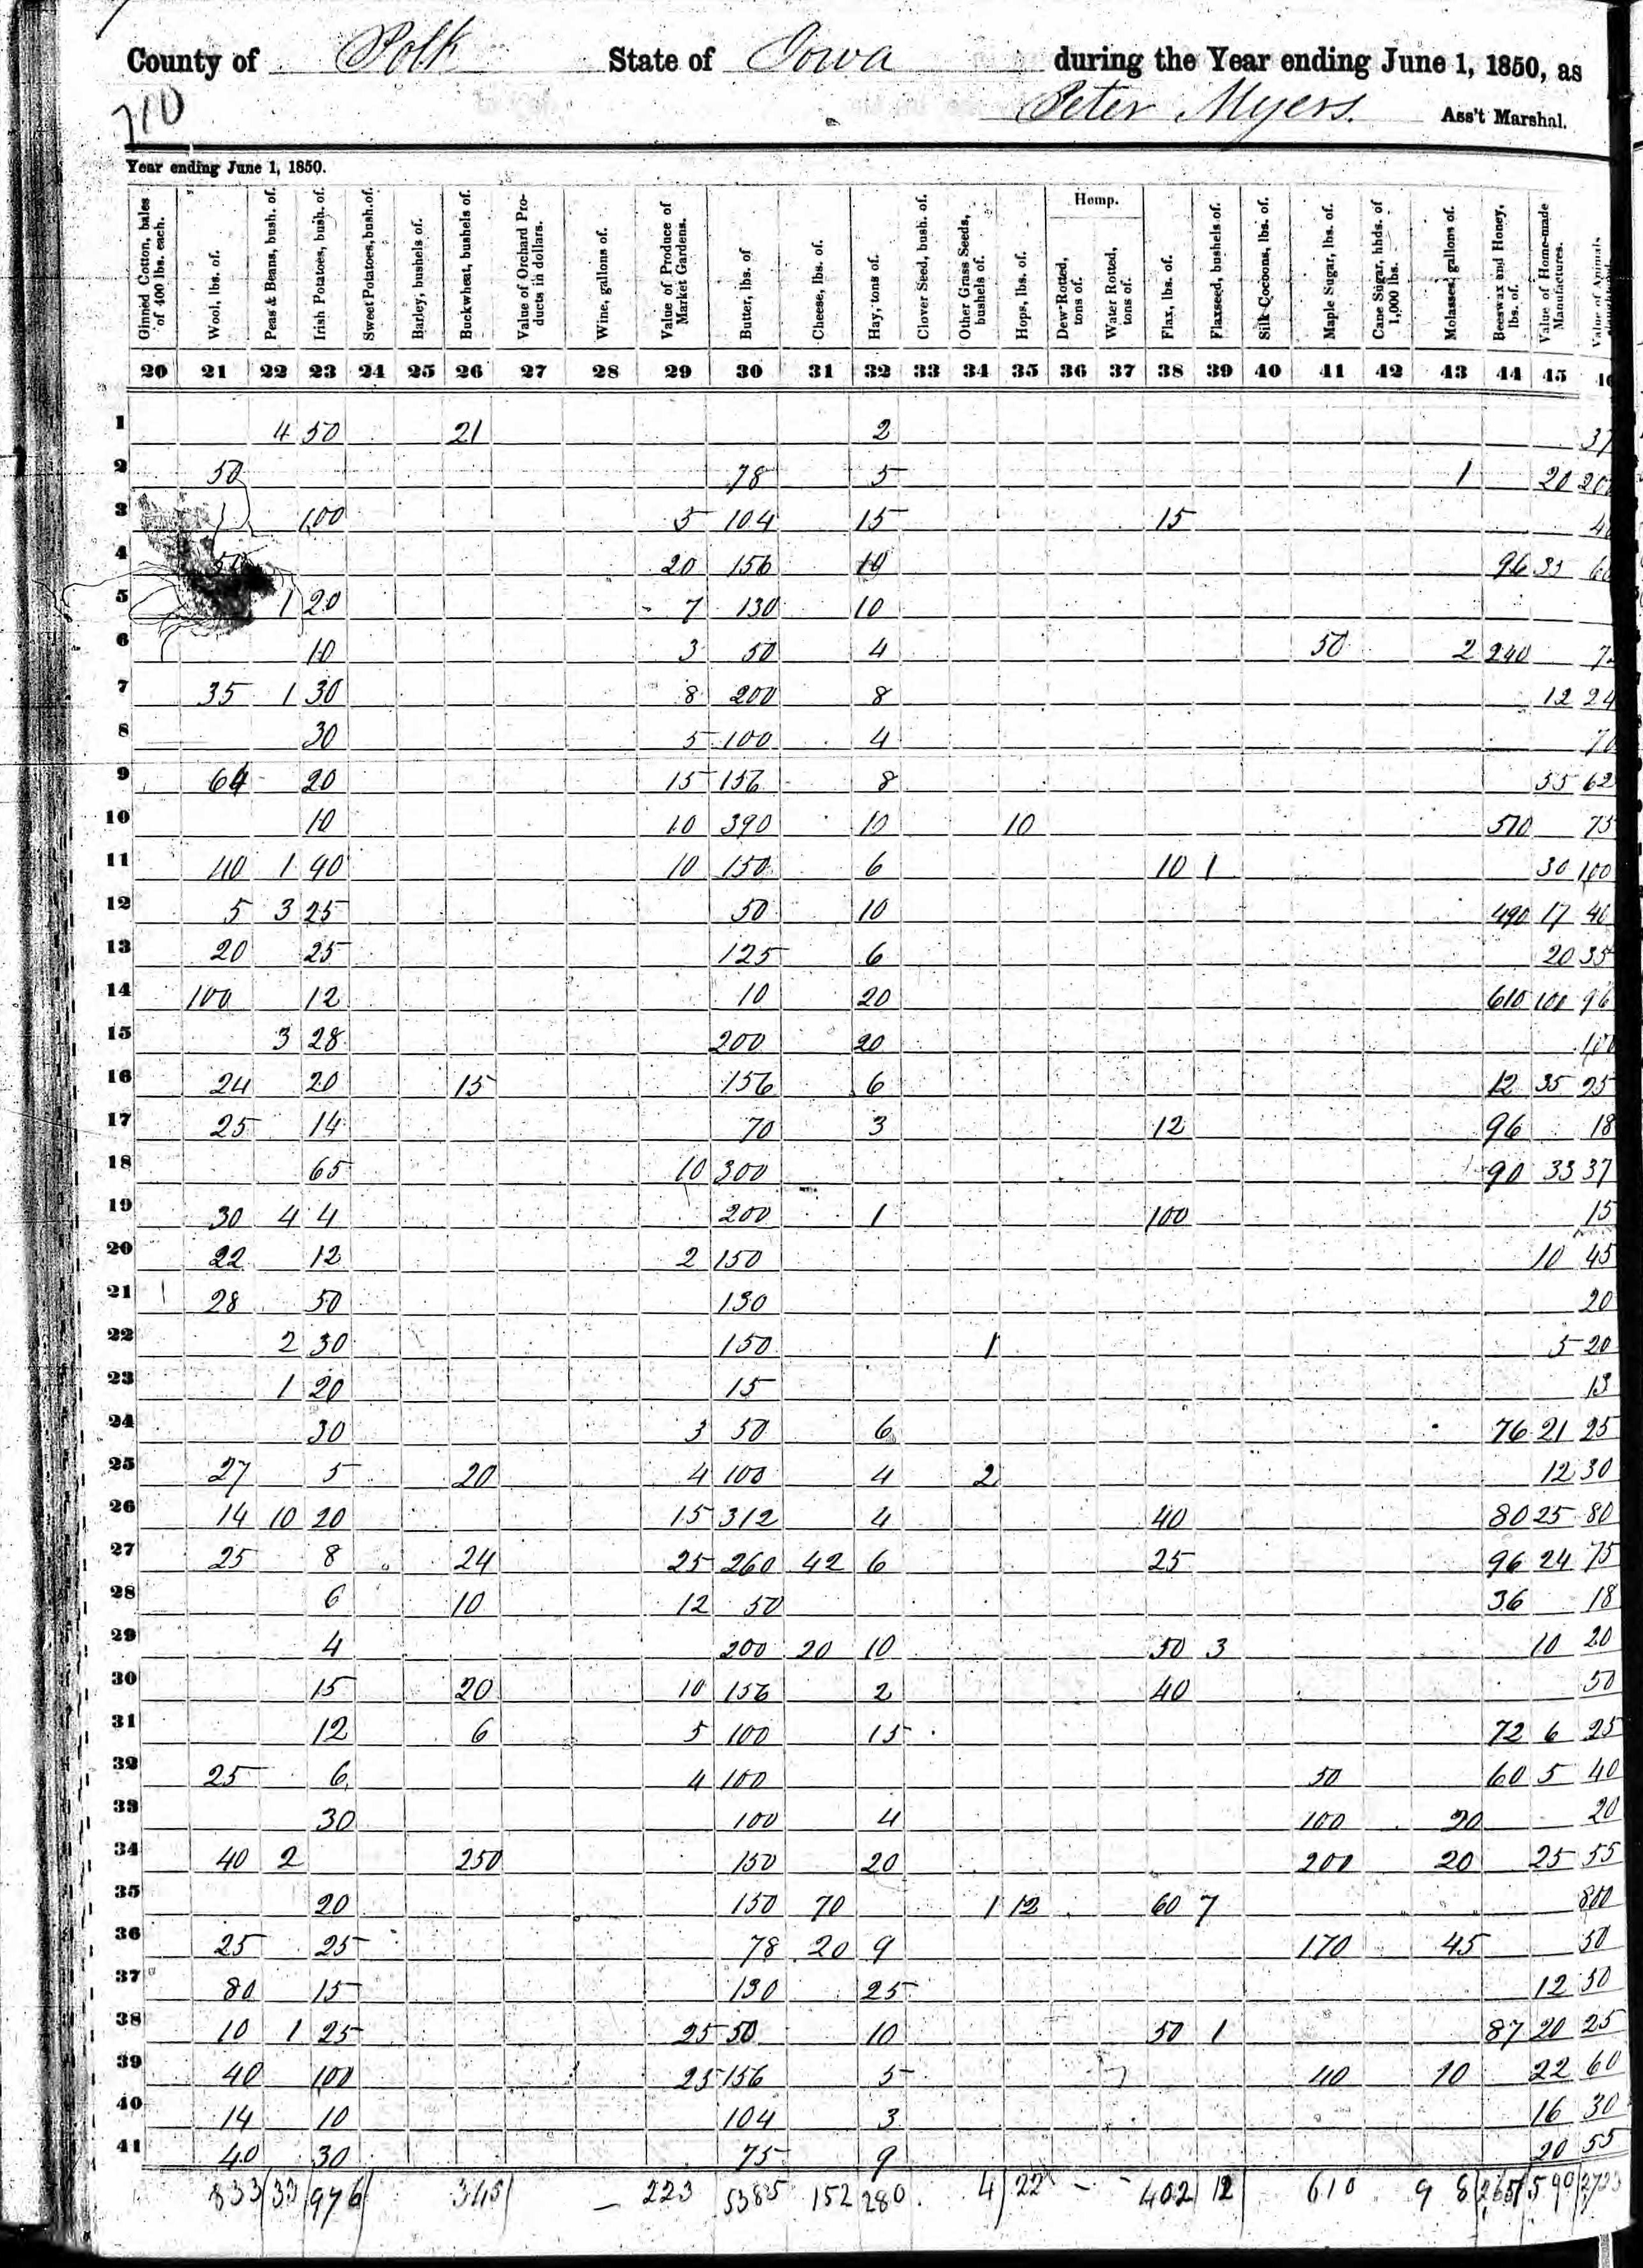 County of Polk State of Iowa during the Year ending June 1, 1850, as
210 Peter Myers. Ass't Marshal.
Year ending June 1, 1850.
Ginned Cotton, bales of 400 lbs. each. Wool, lbs. of. Peas & Beans, bush. of. Irish Potatoes, bush. of. Sweet Potatoes, bush. of. Barley, bushels of. Buckwheat, bushels of. Value of Orchard Products in dollars. Wine, gallons of. Value of Produce of Market Gardens. Butter, lbs. of Cheese, lbs. of. Hay, tons of. Clover Seed, bush. of. Other Grass Seeds, bushels of. Hops, lbs. of. Hemp. Dew Rotted, tons of. Water Rotted, tons of. Flax, lbs. of. Flaxseed, bushels of. Silk Cocoons, lbs. of. Maple Sugar, lbs. of. Cane Sugar, hhds. of 1,000 lbs. Molasses, gallons of. Beeswax and Honey, lbs. of. Value of Home-made Manufactures. Value of Animals
20 21 22 23 24 25 26 27 28 29 30 31 32 33 34 35 36 37 38 39 40 41 42 43 44 45 46
1 4 50 21 2 37
2 50 78 5 1 20 200
3 100 5 104 15 15
4 50 20 156 10 96 33
5 1 20 7 130 10
6 10 3 50 4 50 2 240
7 35 1 30 8 200 8 12 24
8 30 5 100 4 70
9 64 20 15 156 8 55 62
10 10 10 390 10 10 510 75
11 40 1 40 10 150 6 10 1 30 100
12 5 3 25 50 10 490 17 40
13 20 25 125 6 20 35
14 100 12 10 20 610 100 96
15 3 28 200 20 100
16 24 20 15 156 6 12 35 25
17 25 14 70 3 12 96 18
18 65 10 300 90 33 37
19 30 4 4 200 1 100 15
20 22 12 2 150 10 45
21 28 50 130 20
22 2 30 150 1 5 20
23 1 20 15 13
24 30 3 50 6 76 21 25
25 27 5 20 4 100 4 2 12 30
26 14 10 20 15 312 4 40 80 25 80
27 25 8 24 25 260 42 6 25 96 24 75
28 6 10 12 50 36 18
29 4 200 20 10 50 3 10 20
30 15 20 10 156 2 40 50
31 12 6 5 100 15 72 6 25
32 25 6 4 100 50 60 5 40
33 30 100 4 100 20 20
34 40 2 250 150 20 200 20 25 55
35 20 150 70 1 12 60 7 800
36 25 25 78 20 9 170 45 50
37 80 15 130 25 12 50
38 10 1 25 25 50 10 50 1 87 20 25
39 40 100 25 156 5 40 10 22 60
40 14 10 104 3 16 30
41 40 30 75 9 20 55
833 33 976 345 — 223 5385 152 280 4 22 - - 402 12 610 9 8 2651 590 2723